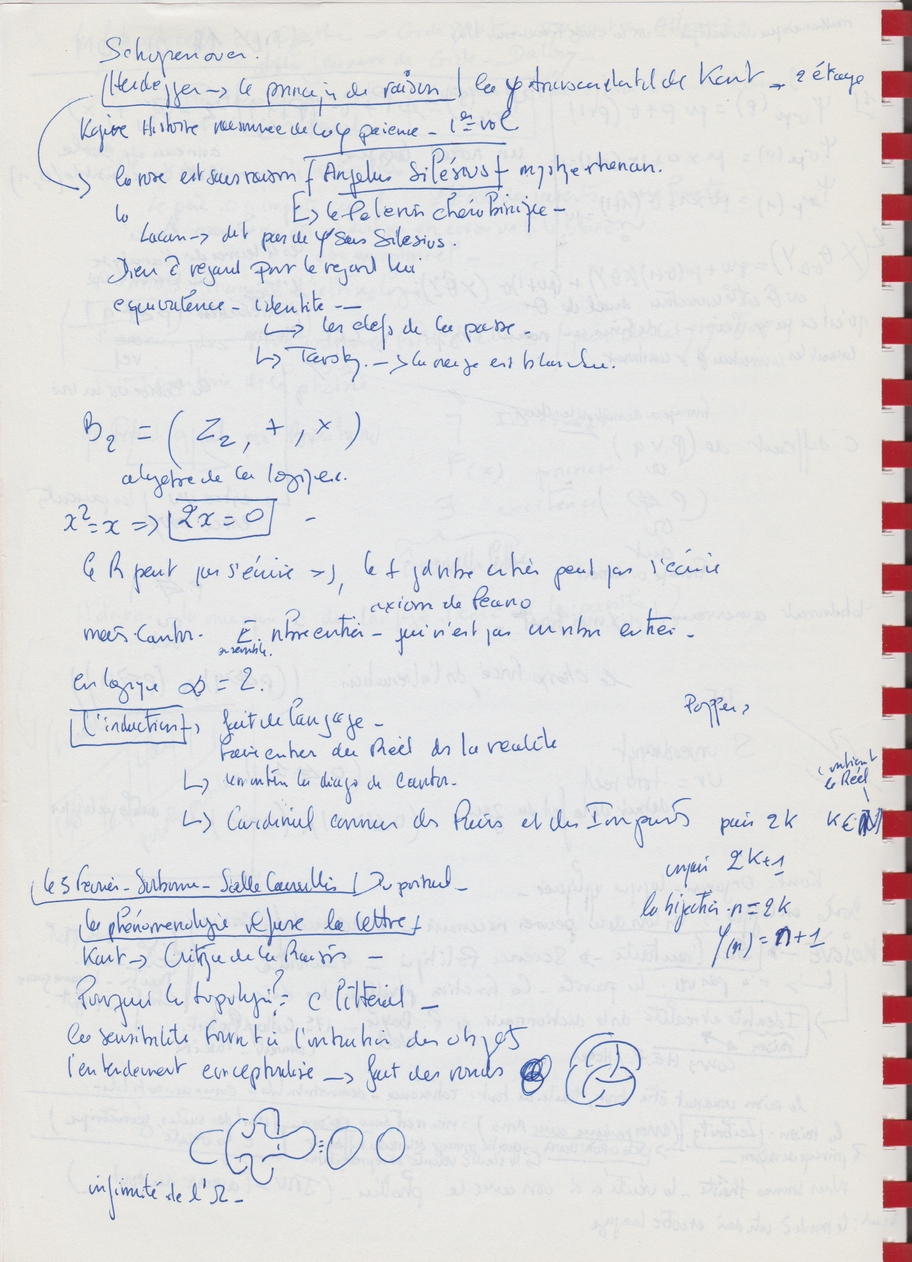 Schopenauer.
Heidegger → le principe de raison / la φ transcendantal de Kant → 2 étage
Kojève Histoire raisonnée de la φ païenne - 1er vol
la rose est sans raison Angelus Silésius mystique rhénan.
Le Pèlerin chérubinique -
Lacan → dit pas de ψ sans Silésius.
Dieu regard pour le regard lui
equivalence - identité —
↳ les clefs de la passe -
↳ Tarsky. → la neige est blanche.
B2 = ( Z2, +, x )
algèbre de la logique.
x² = x => 2x = 0 -
le R peut pas s'écrire =>, le f d nbre entier peut pas s'écrire
axiom de Peano
mais Cantor. E nbre entier - qui n'est pas un nbre entier -
ensemble.
en logique ∞ = 2.
Popper,
l'induction, fait de langage -
faire entrer du Réel ds la réalité
↳ la diago de Cantor.
contient le Réel
↳ Cardinal commun des Pairs et des Impairs pair 2k k∈N
impair 2k+1
le 5 Février - Sorbonne - Salle Cavaillès / Du portail -
la bijection n = 2k
la phénoménologie épure la lettre
φ(n) = n+1
Kant → Critique de la Raison -
Pourquoi la topologie? C littéral -
la sensibilité fournit l'intuition des objets
l'entendement conceptualise → fait des ronds
infinité de l'Ω -